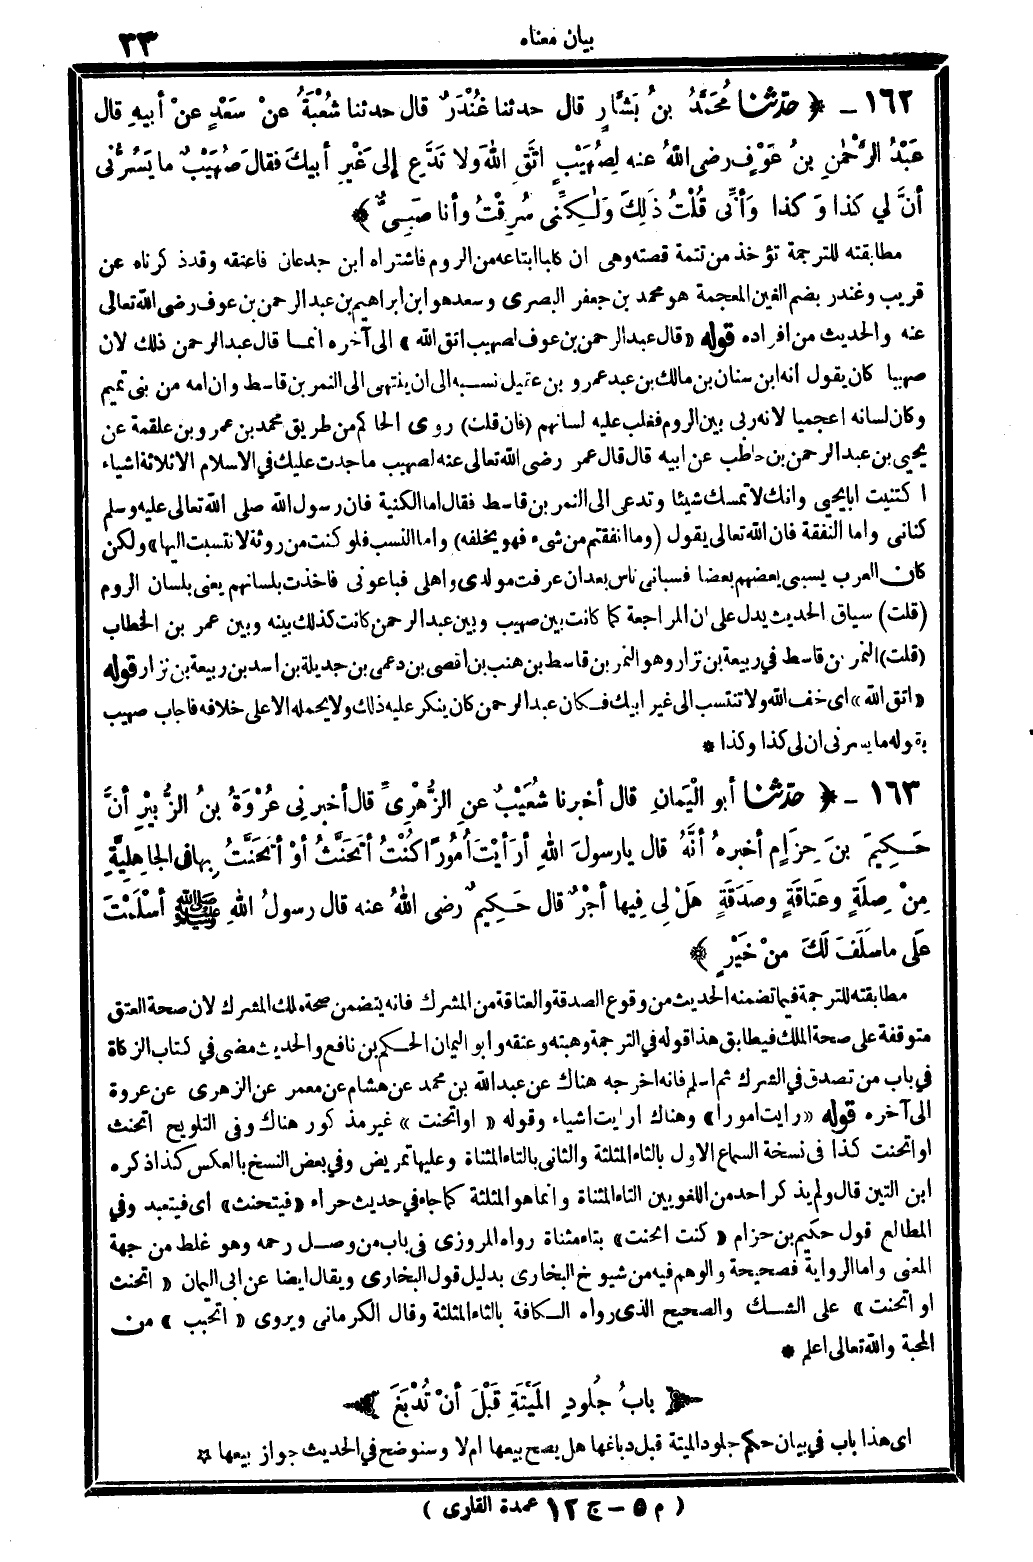 بيان معناه
٣٣
١٦٢ ـ ﴿ حدّثنا مُحَمَّدُ بنُ بَشَّارٍ قال حدثنا غُنْدَرٌ قال حدثنا شُعْبَةُ عنْ سَعْدٍ عنْ أبيهِ قال
عَبْدُ الرَّحْمٰنِ بنُ عَوْفٍ رضى اللهُ عنه لِصُهَيْبٍ اتَّقِ اللهَ ولا تَدَّعِ إلى غَيْرِ أبيكَ فقالَ صُهَيْبٌ ما يَسُرُّنى
أنَّ لي كذا وَ كذا وَأنِّى قُلْتُ ذَلِكَ وَلٰكِنِّى سُرِقْتُ وأنا صَبِىٌّ ﴾
مطابقته للترجمة تؤخذ من تتمة قصته وهى ان كلبا ابتاعه من الروم فاشتراه ابن جدعان فاعتقه وقد ذكرناه عن
قريب وغندر بضم الغين المعجمة هو محمد بن جعفر البصرى وسعد هو ابن ابراهيم بن عبد الرحمن بن عوف رضى الله تعالى
عنه والحديث من افراده قوله «قال عبد الرحمن بن عوف لصهيب اتق الله» الى آخره انما قال عبد الرحمن ذلك لان
صهيبا كان يقول انه ابن سنان بن مالك بن عبد عمرو بن عقيل نسبه الى ان ينتهى الى النمر بن قاسط وان امه من بنى تميم
وكان لسانه اعجميا لانه ربى بين الروم فغلب عليه لسانهم (فان قلت) روى الحاكم من طريق محمد بن عمرو بن علقمة عن
يحيى بن عبد الرحمن بن حاطب عن ابيه قال قال عمر رضى الله تعالى عنه لصهيب ما جدت عليك في الاسلام الا ثلاثة اشياء
اكتنيت ابا يحيى وانك لا تمسك شيئا وتدعى الى النمر بن قاسط فقال اما الكنية فان رسول الله صلى الله تعالى عليه وسلم
كنانى واما النفقة فان الله تعالى يقول (وما انفقتم من شىء فهو يخلفه) واما النسب فلو كنت من روثة لانتسبت اليها» ولكن
كان العرب يسبى بعضهم بعضا فسبانى ناس بعد ان عرفت مولدى واهلى فباعونى فاخذت بلسانهم يعنى بلسان الروم
(قلت) سياق الحديث يدل على ان المراجعة كما كانت بين صهيب وبين عبد الرحمن كانت كذلك بينه وبين عمر بن الخطاب
(قلت) النمر بن قاسط في ربيعة بن نزار وهو النمر بن قاسط بن هنب بن افصى بن دعمى بن جديلة بن اسد بن ربيعة بن نزار قوله
«اتق الله» اى خف الله ولا تنتسب الى غير ابيك فكان عبد الرحمن كان ينكر عليه ذلك ولا يحمله الا على خلافه فاجاب صهيب
بقوله ما يسرنى ان لى كذا وكذا *
١٦٣ ـ ﴿ حدّثنا أبو الْيَمانِ قال أخبرنا شُعَيْبٌ عنِ الزُّهْرِىِّ قال أخبرنى عُرْوَةُ بنُ الزُّبيْرِ أنَّ
حَكِيمَ بنَ حِزَامٍ أخبرهُ أنَّهُ قال يارسولَ اللهِ أرَأيْتَ أُمُورًا كُنْتُ أتَحَنَّثُ أوْ أتَحَنَّتُ بِها فى الجاهِليَّةِ
مِنْ صِلَةٍ وعَتاقَةٍ وصَدَقَةٍ هَلْ لِى فِيها أجْرٌ قال حَكِيمٌ رضى اللهُ عنه قال رسولُ اللهِ ﷺ أسْلَمْتَ
عَلَى ماسَلَفَ لَكَ مِنْ خَيْرٍ ﴾
مطابقته للترجمة فيما تضمنه الحديث من وقوع الصدقة والعتاقة من المشرك فانه يتضمن صحة ملك المشرك لان صحة العتق
متوقفة على صحة الملك فيطابق هذا قوله في الترجمة وهبته وعتقه وابو اليمان الحكم بن نافع والحديث مضى في كتاب الزكاة
في باب من تصدق في الشرك ثم اسلم فانه اخرجه هناك عن عبد الله بن محمد عن هشام عن معمر عن الزهرى عن عروة
الى آخره قوله «رايت امورا» وهناك ارايت اشياء وقوله «او اتحنت» غير مذكور هناك وفى التلويح اتحنث
او اتحنت كذا فى نسخة السماع الاول بالثاء المثلثة والثانى بالتاء المثناة وعليها تمريض وفي بعض النسخ بالعكس كذا ذكره
ابن التين قال ولم يذكر احد من اللغويين التاء المثناة وانما هو المثلثة كما جاء في حديث حراء «فيتحنث» اى فيتعبد وفي
المطالع قول حكيم بن حزام «كنت اتحنت» بتاء مثناة رواه المروزى فى باب من وصل رحمه وهو غلط من جهة
المعنى واما الرواية فصحيحة والوهم فيه من شيوخ البخارى بدليل قول البخارى ويقال ايضا عن ابى اليمان «اتحنث
او اتحنت» على الشك والصحيح الذى رواه الكافة بالثاء المثلثة وقال الكرمانى ويروى «اتحبب» من
المحبة والله تعالى اعلم *
﴿ بابُ جُلُودِ المَيْتَةِ قَبْلَ أنْ تُدْبَغَ ﴾
اى هذا باب في بيان حكم جلود الميتة قبل دباغها هل يصح بيعها ام لا وسنوضح في الحديث جواز بيعها *
( م ٥ – ج ١٢ عمدة القارى )